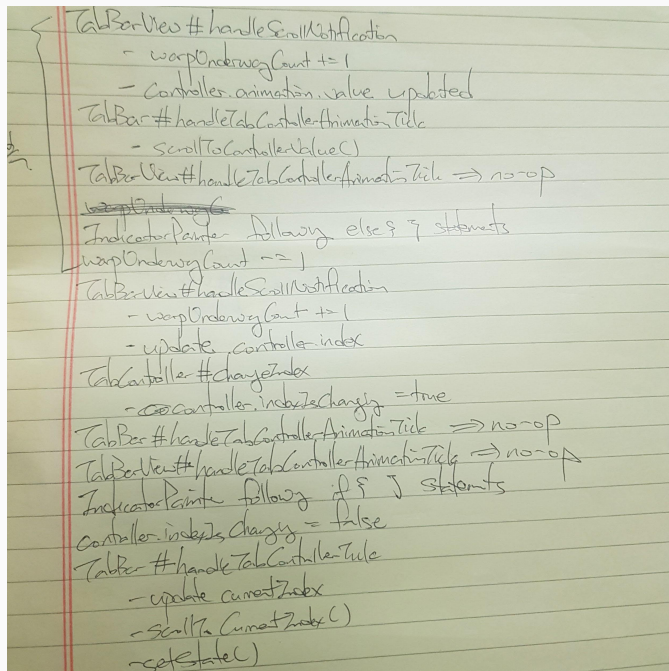 TabBarView#handleScrollNotification
- warpUnderwayCount += 1
- Controller.animation.value updated
TabBar#handleTabControllerAnimationTick
- scrollToControllerValue()
TabBarView#handleTabControllerAnimationTick => no-op
IndicatorPainter following else { } statements
warpUnderwayCount -= 1
TabBarView#handleScrollNotification
- warpUnderwayCount += 1
- update controller.index
TabController#changeIndex
- controller.indexIsChanging = true
TabBar#handleTabControllerAnimationTick => no-op
TabBarView#handleTabControllerAnimationTick => no-op
IndicatorPainter following if { } statements
controller.indexIsChanging = false
TabBar#handleTabControllerTick
- update currentIndex
- scrollToCurrentIndex()
- setState()